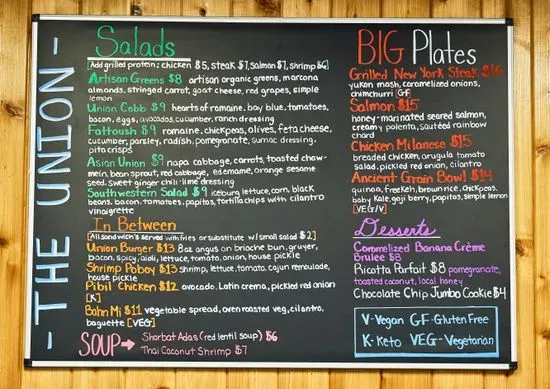 - THE UNION -
Salads
[Add grilled protein: chicken $5, steak $7, salmon $7, shrimp $6]
Artisan Greens $8 artisan organic greens, marcona
almonds, stringed carrot, goat cheese, red grapes, simple
lemon
Union Cobb $9 hearts of romaine, bay blue, tomatoes,
bacon, eggs, avocados, cucumber, ranch dressing
Fattoush $9 romaine, chickpeas, olives, feta cheese,
cucumber, parsley, radish, pomegranate, sumac dressing,
pita crisps
Asian Union $9 napa cabbage, carrots, toasted chow-
mein, bean sprout, red cabbage, edemame, orange sesame
seed, sweet ginger chili-lime dressing
Southwestern Salad $9 iceburg lettuce, corn, black
beans, bacon, tomatoes, papitas, tortilla chips with cilantro
vinaigrette
In Between
[All sandwich's served with fries or substitute w/ small salad $2]
Union Burger $13 8oz angus on brioche bun, gruyer,
bacon, spicy, aioli, lettuce, tomato, onion, house pickle
Shrimp Poboy $13 shrimp, lettuce, tomato, cajun remoulade,
house pickle
Pibil Chicken $12 avocado, Latin crema, pickled red onion
[K]
Bahn Mi $11 vegetable spread, oven roasted veg, cilantro,
baguette [VEG]
SOUP → Shorbat Adas (red lentil soup) $6
Thai Coconut Shrimp $7
BIG Plates
Grilled New York Steak $16
yukon mash, caramelized onions,
chimichurri [GF]
Salmon $15
honey-marinated seared salmon,
creamy polenta, sautéed rainbow
chard
Chicken Milanese $15
breaded chicken, arugula tomato
salad, pickled red onion, cilantro
Ancient Grain Bowl $14
quinoa, freekeh, brown rice, chickpeas,
baby kale, goji berry, papitas, simple lemon
[VEG/V]
Desserts
Caramelized Banana Crème
Brulee $8
Ricotta Parfait $8 pomegranate,
toasted coconut, local honey
Chocolate Chip Jumbo Cookie $4
V-Vegan GF-Gluten Free
K-Keto VEG-Vegetarian